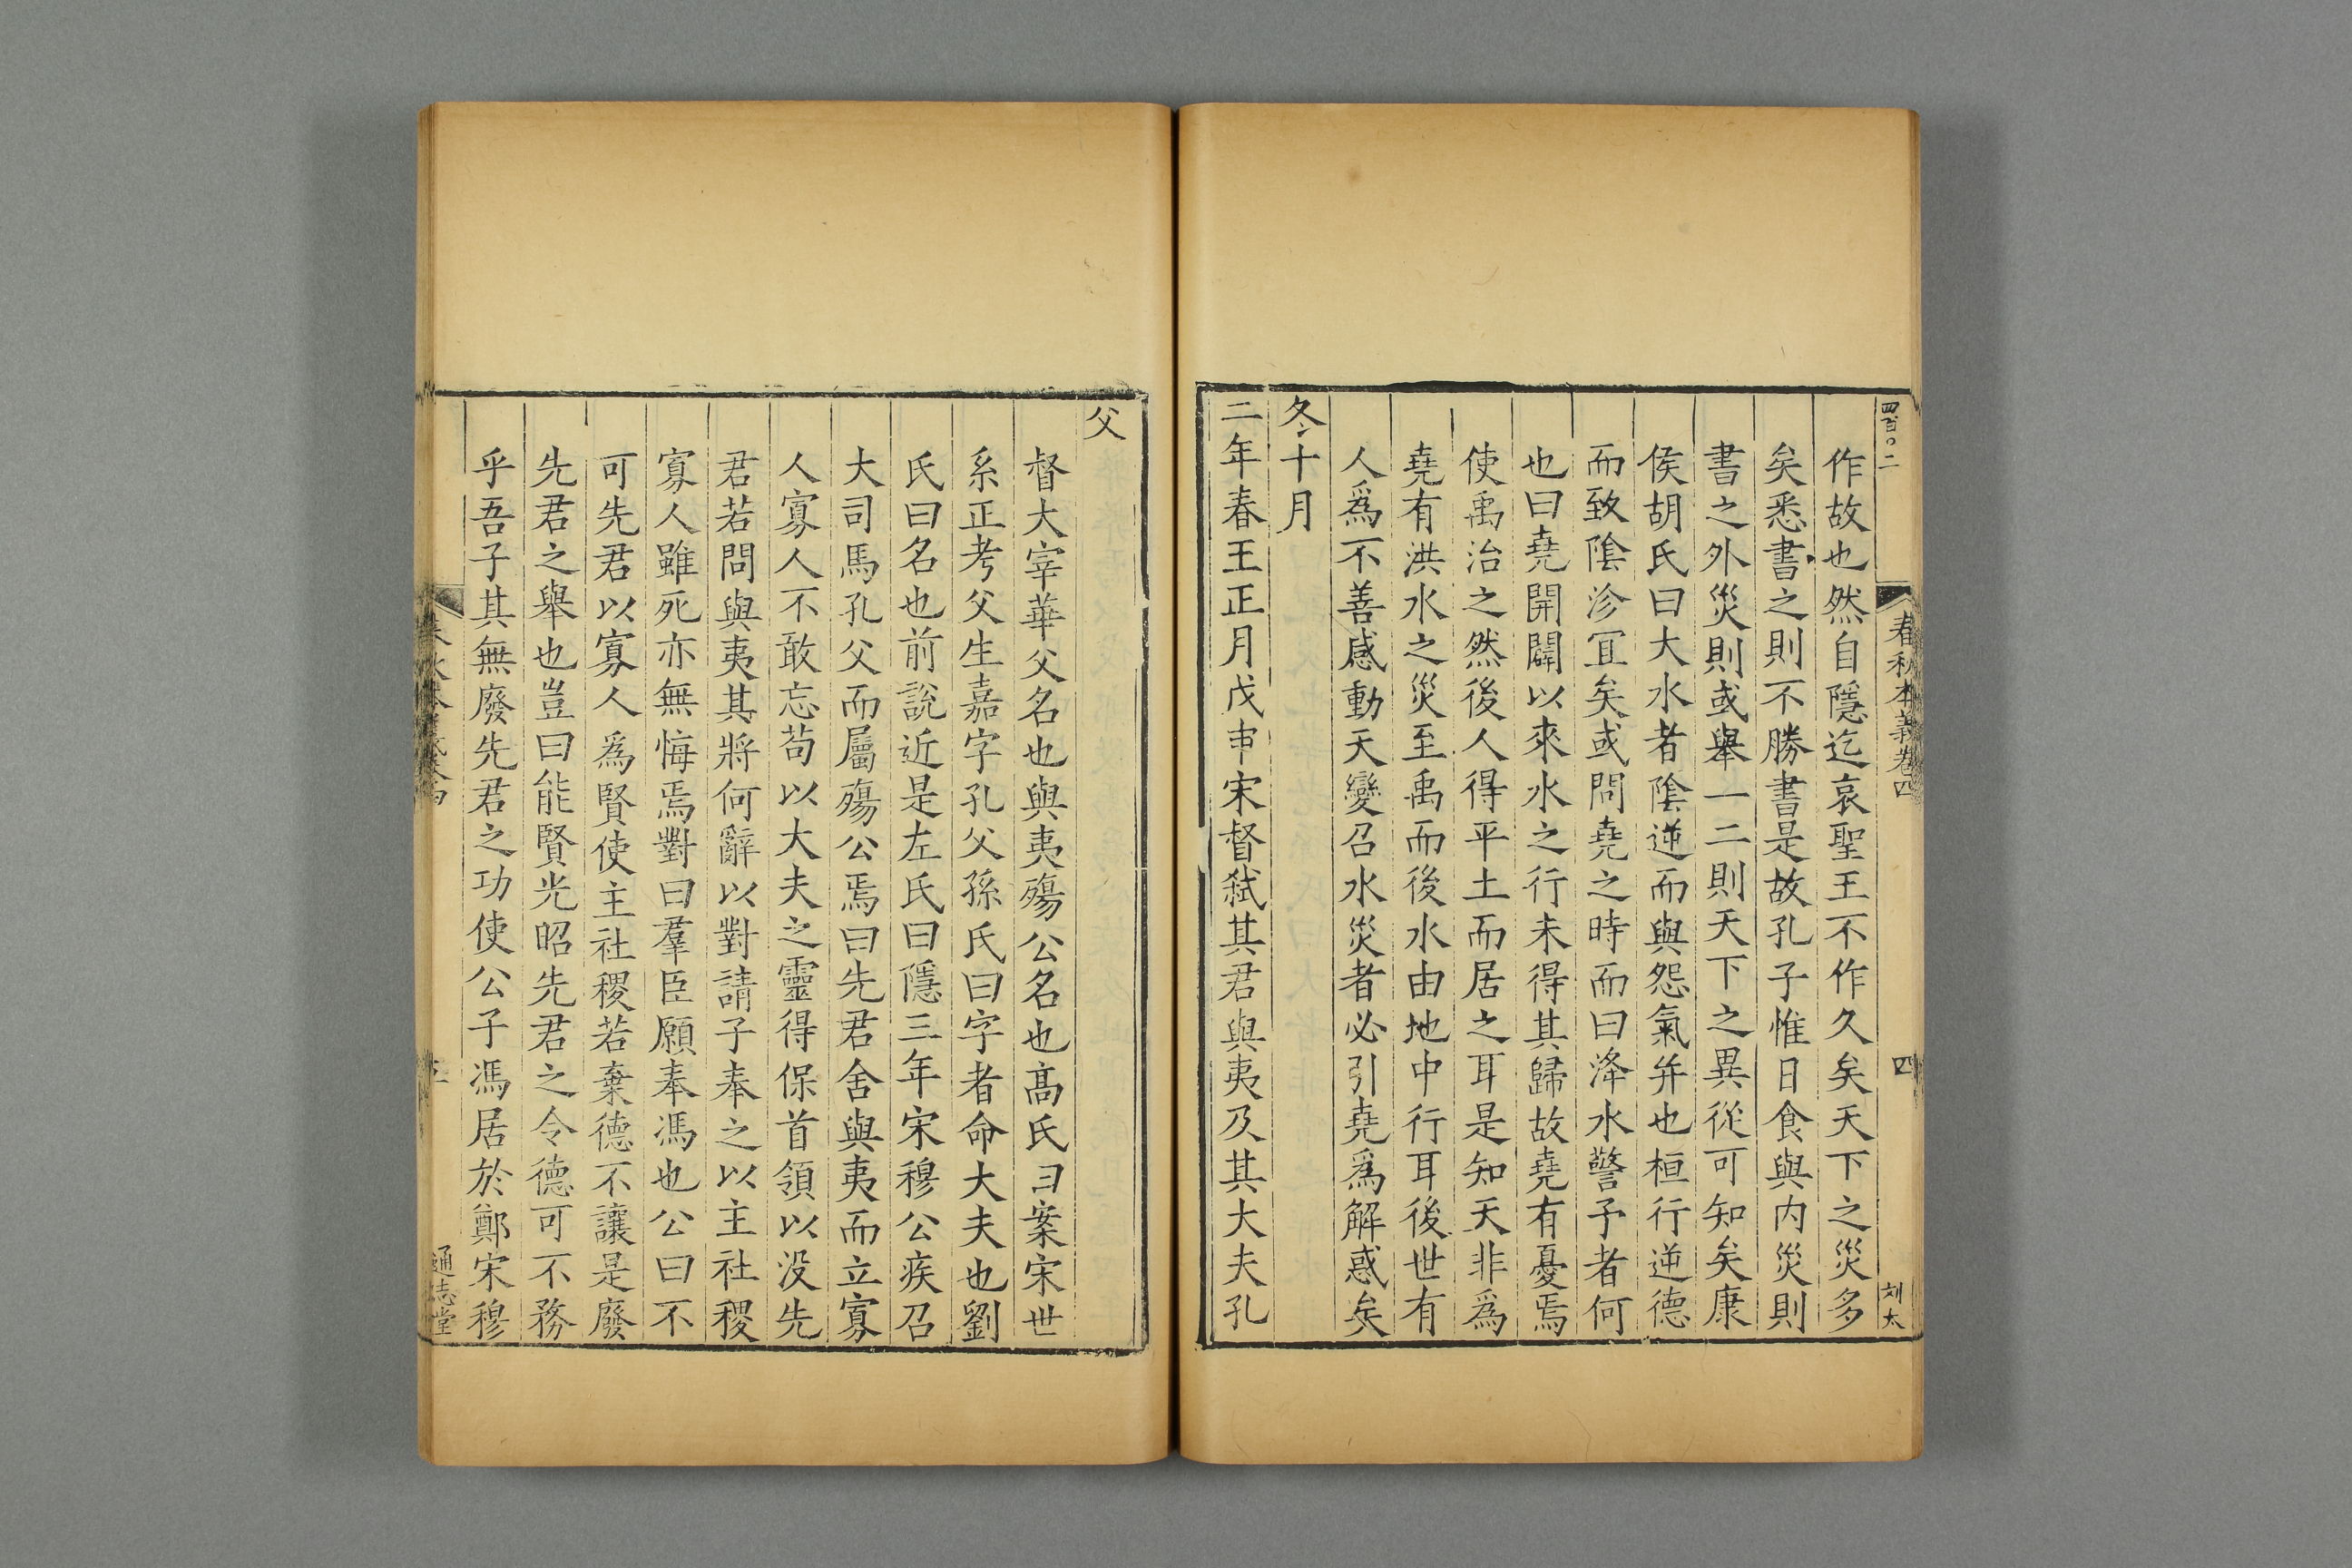 四百〇二
春秋本義卷四
四
刘太
作故也然自隱迄哀聖王不作久矣天下之災多
矣悉書之則不勝書是故孔子惟日食與内災則
書之外災則或舉一二則天下之異從可知矣康
侯胡氏曰大水者陰逆而與怨氣并也桓行逆德
而致陰沴冝矣或問堯之時而曰洚水警予者何
也曰堯開闢以來水之行未得其歸故堯有憂焉
使禹治之然後人得平土而居之耳是知天非爲
堯有洪水之災至禹而後水由地中行耳後世有
人爲不善感動天變召水災者必引堯爲解惑矣
冬十月
二年春王正月戊申宋督弑其君與夷及其大夫孔
父
督大宰華父名也與夷殤公名也髙氏曰案宋世
系正考父生嘉字孔父孫氏曰字者命大夫也劉
氏曰名也前說近是左氏曰隱三年宋穆公疾召
大司馬孔父而屬殤公焉曰先君舍與夷而立寡
人寡人不敢忘茍以大夫之靈得保首領以没先
君若問與夷其將何辭以對請子奉之以主社稷
寡人雖死亦無悔焉對曰羣臣願奉馮也公曰不
可先君以寡人爲賢使主社稷若棄德不讓是廢
先君之舉也豈曰能賢光昭先君之令德可不務
乎吾子其無廢先君之功使公子馮居於鄭宋穆
通志堂